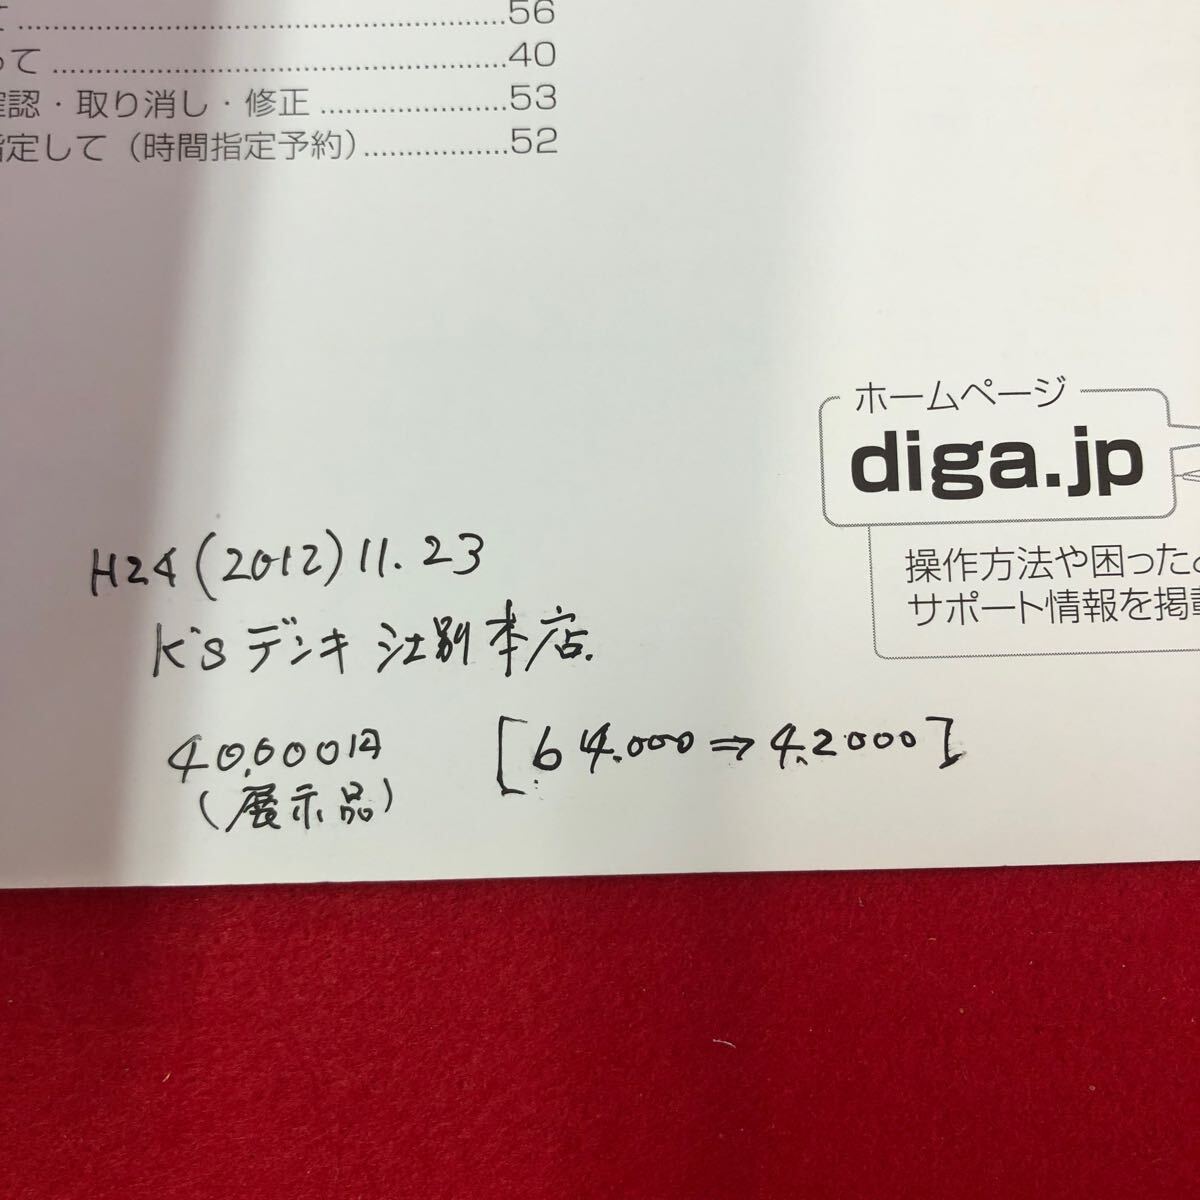 て ........................................56
って ........................................40
確認・取り消し・修正 ....................53
指定して（時間指定予約）................52
ホームページ
diga.jp
操作方法や困ったと
サポート情報を掲載
H24 (2012) 11.23
K's デンキ 江別本店.
40,000円 [64.000 ⇒ 4.2000]
(展示品)